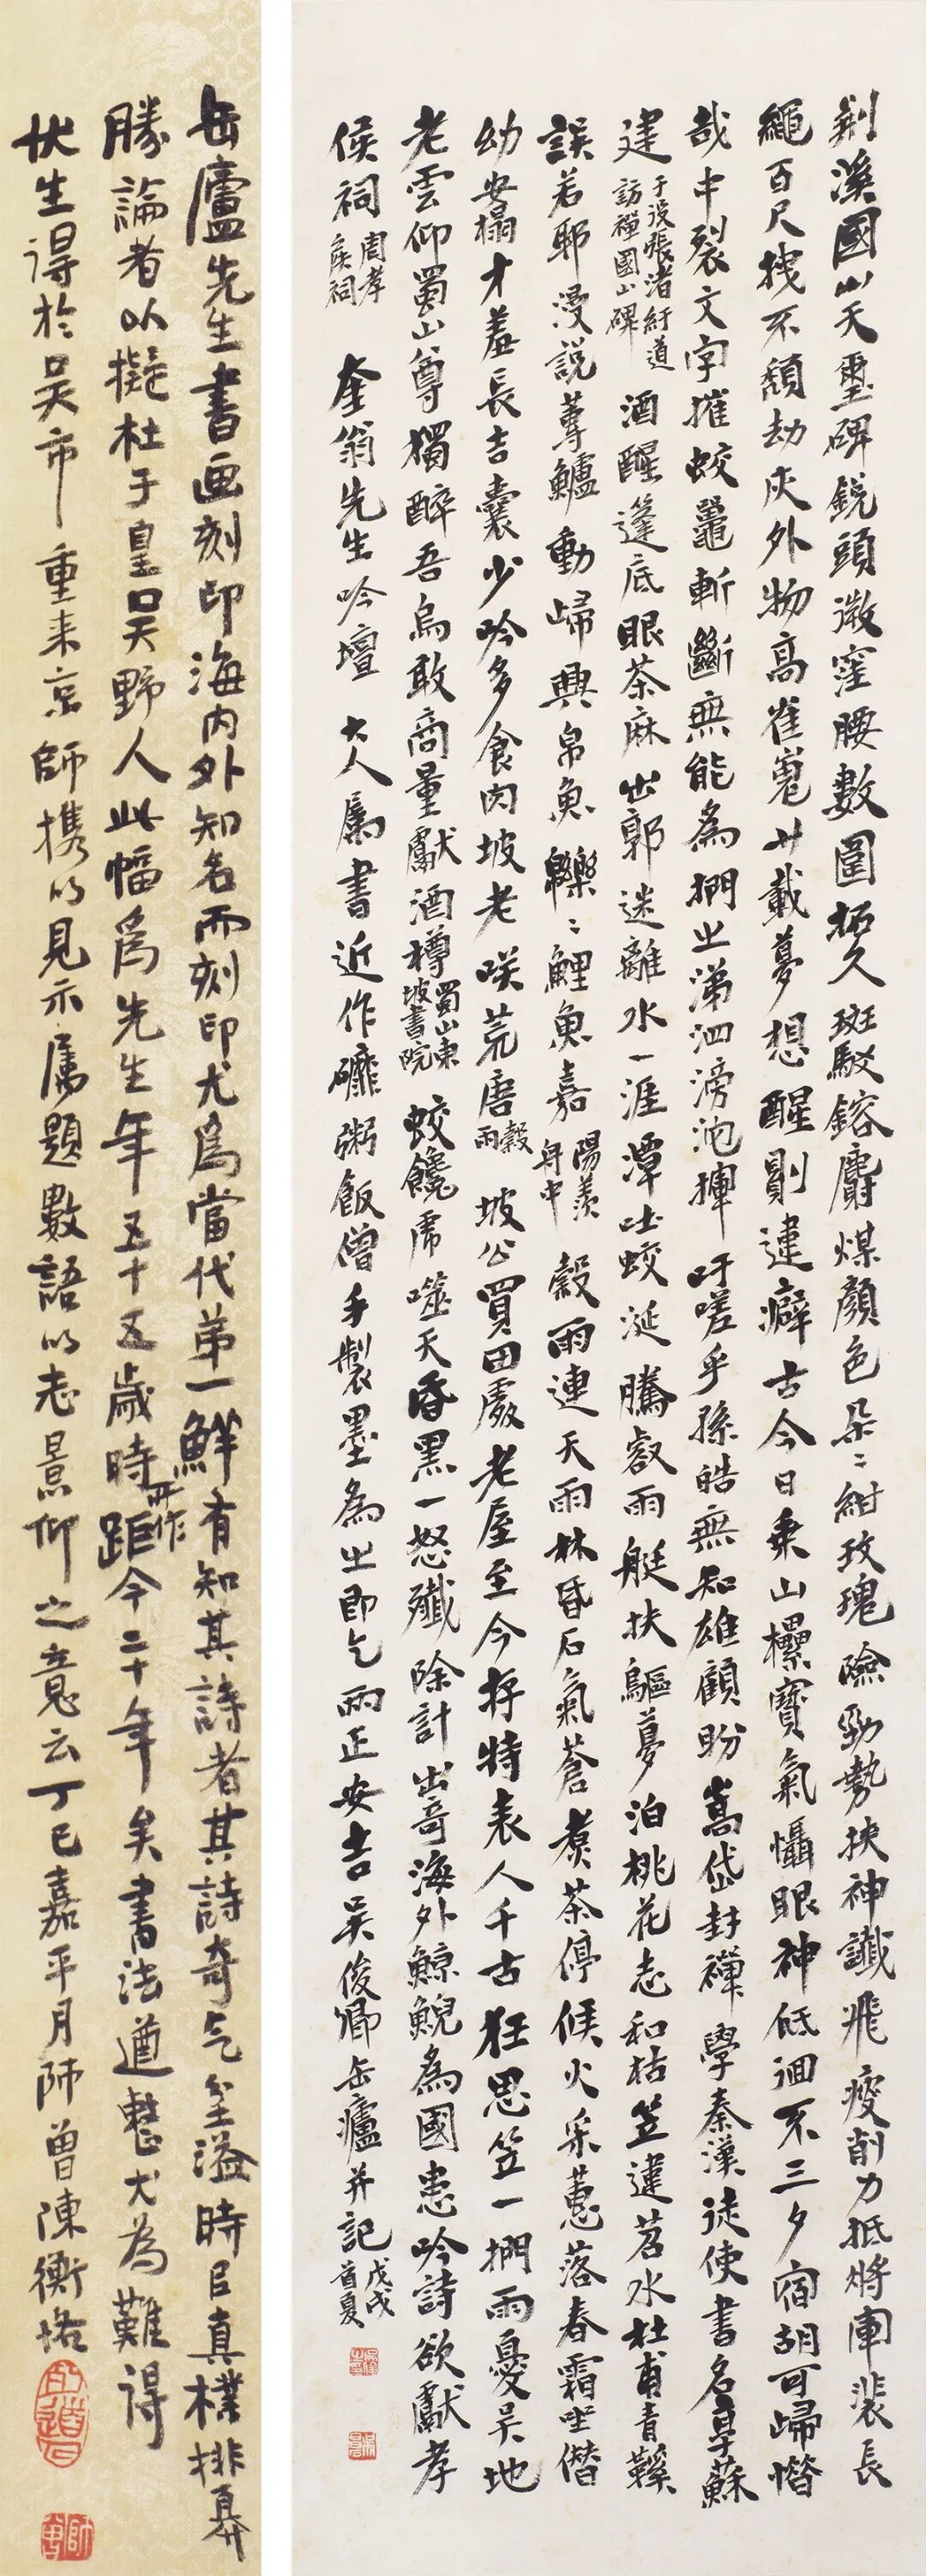 荆溪國山天璽碑銳頭微窪腰數圍拓久斑駁鎔麝煤顏色朵〻紺玫瑰險勁勢挾神讖飛疲削力抵將軍裴長
繩百尺拽不頹劫灰外物高崔嵬廿載夢想醒則違癖古今日乘山欙寶氣懾眼神低徊不三夕宿胡可歸惜
哉中裂文字摧蛟鼉斬斷無能為捫之涕泗滂沱揮吁嗟乎孫皓無知雄顧盼嵩岱封禪學秦漢徒使書名皐蘇
建
于役張渚紆道
訪禪國山碑
酒醒篷底眼茶麻出郭迷離水一涯潭吐蛟涎騰叡雨艇扶驅夢泊桃花志和枯笠違苕水杜甫青鞵
誤若耶漫說蓴鱸動歸興帛魚轣〻鯉魚嘉
陽羨
舟中
穀雨連天雨林昏石氣蒼煮茶停候火采蕙落春霜坐偕
幼安榻才羞長吉囊少吟多食肉坡老咲荒唐
穀
雨
坡公買田處老屋至今存特表人千古狂思笠一捫雨憂吳地
老雲仰蜀山尊獨醉吾烏敢商量獻酒樽
蜀山東
坡書院
蛟饞虎噬天昏黑一怒殲除計出奇海外鯨鯢為國患吟詩欲獻孝
侯祠
周孝
侯祠
奎翁先生吟壇 大人屬書近作礳粥飯僧手製墨為之即乞兩正安吉吳俊卿缶廬并記
戊戌
首夏
缶廬先生書画刻印海內外知名而刻印尤為當代第一鮮有知其詩者其詩奇气坌溢時臣真樸排奡
勝論者以擬杜于皇吳野人此幅為先生年五十五歲時
所作
距今二十年矣書法遒整尤為難得
伏生得於吳市重來京師携以見示屬題數語以志景仰之意云丁巳嘉平月師曾陳衡恪